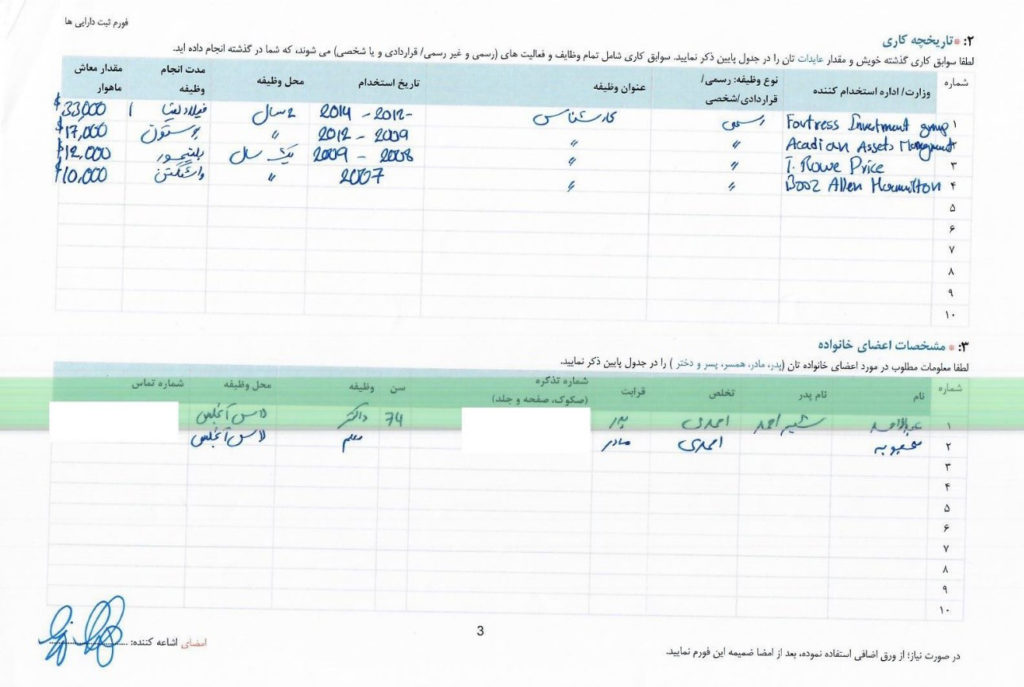 فورم ثبت دارایی ها
۲: * تاریخچه کاری
لطفا سوابق کاری گذشته خویش و مقدار عایدات تان را در جدول پایین ذکر نمایید. سوابق کاری شامل تمام وظایف و فعالیت های (رسمی و غیر رسمی/ قراردادی و یا شخصی) می شوند، که شما در گذشته انجام داده اید.
شماره وزارت/ اداره استخدام کننده نوع وظیفه: رسمی/ قراردادی/شخصی عنوان وظیفه تاریخ استخدام محل وظیفه مدت انجام وظیفه مقدار معاش ماهوار
۱ Fortress Investment group رسمی کارشناس 2012 - 2014 ۲ سال فیلادلفیا $33,000
Acadian Assets Managment " " 2009 - 2012 " بوستون $17,000
۳ T. Rowe Price " " 2008 - 2009 یک سال بلتیمور $12,000
۴ Booz Allen Hamilton " " 2007 " واشنگتن $10,000
۵
۶
۷
۸
۹
۱۰
۳: * مشخصات اعضای خانواده
لطفا معلومات مطلوب در مورد اعضای خانواده تان (پدر، مادر، همسر، پسر و دختر) را در جدول پایین ذکر نمایید.
شماره نام نام پدر تخلص قرابت شماره تذکره (صکوک، صفحه و جلد) سن وظیفه محل وظیفه شماره تماس
۱ شیر احمد احمدی پدر 74 داکتر لاس آنجلس
۲ محبوبه احمدی مادر معلم لاس آنجلس
۳
۴
۵
۶
۷
۸
۹
۱۰
امضای اشاعه کننده:
3
در صورت نیاز؛ از ورق اضافی استفاده نموده، بعد از امضا ضمیمه این فورم نمایید.